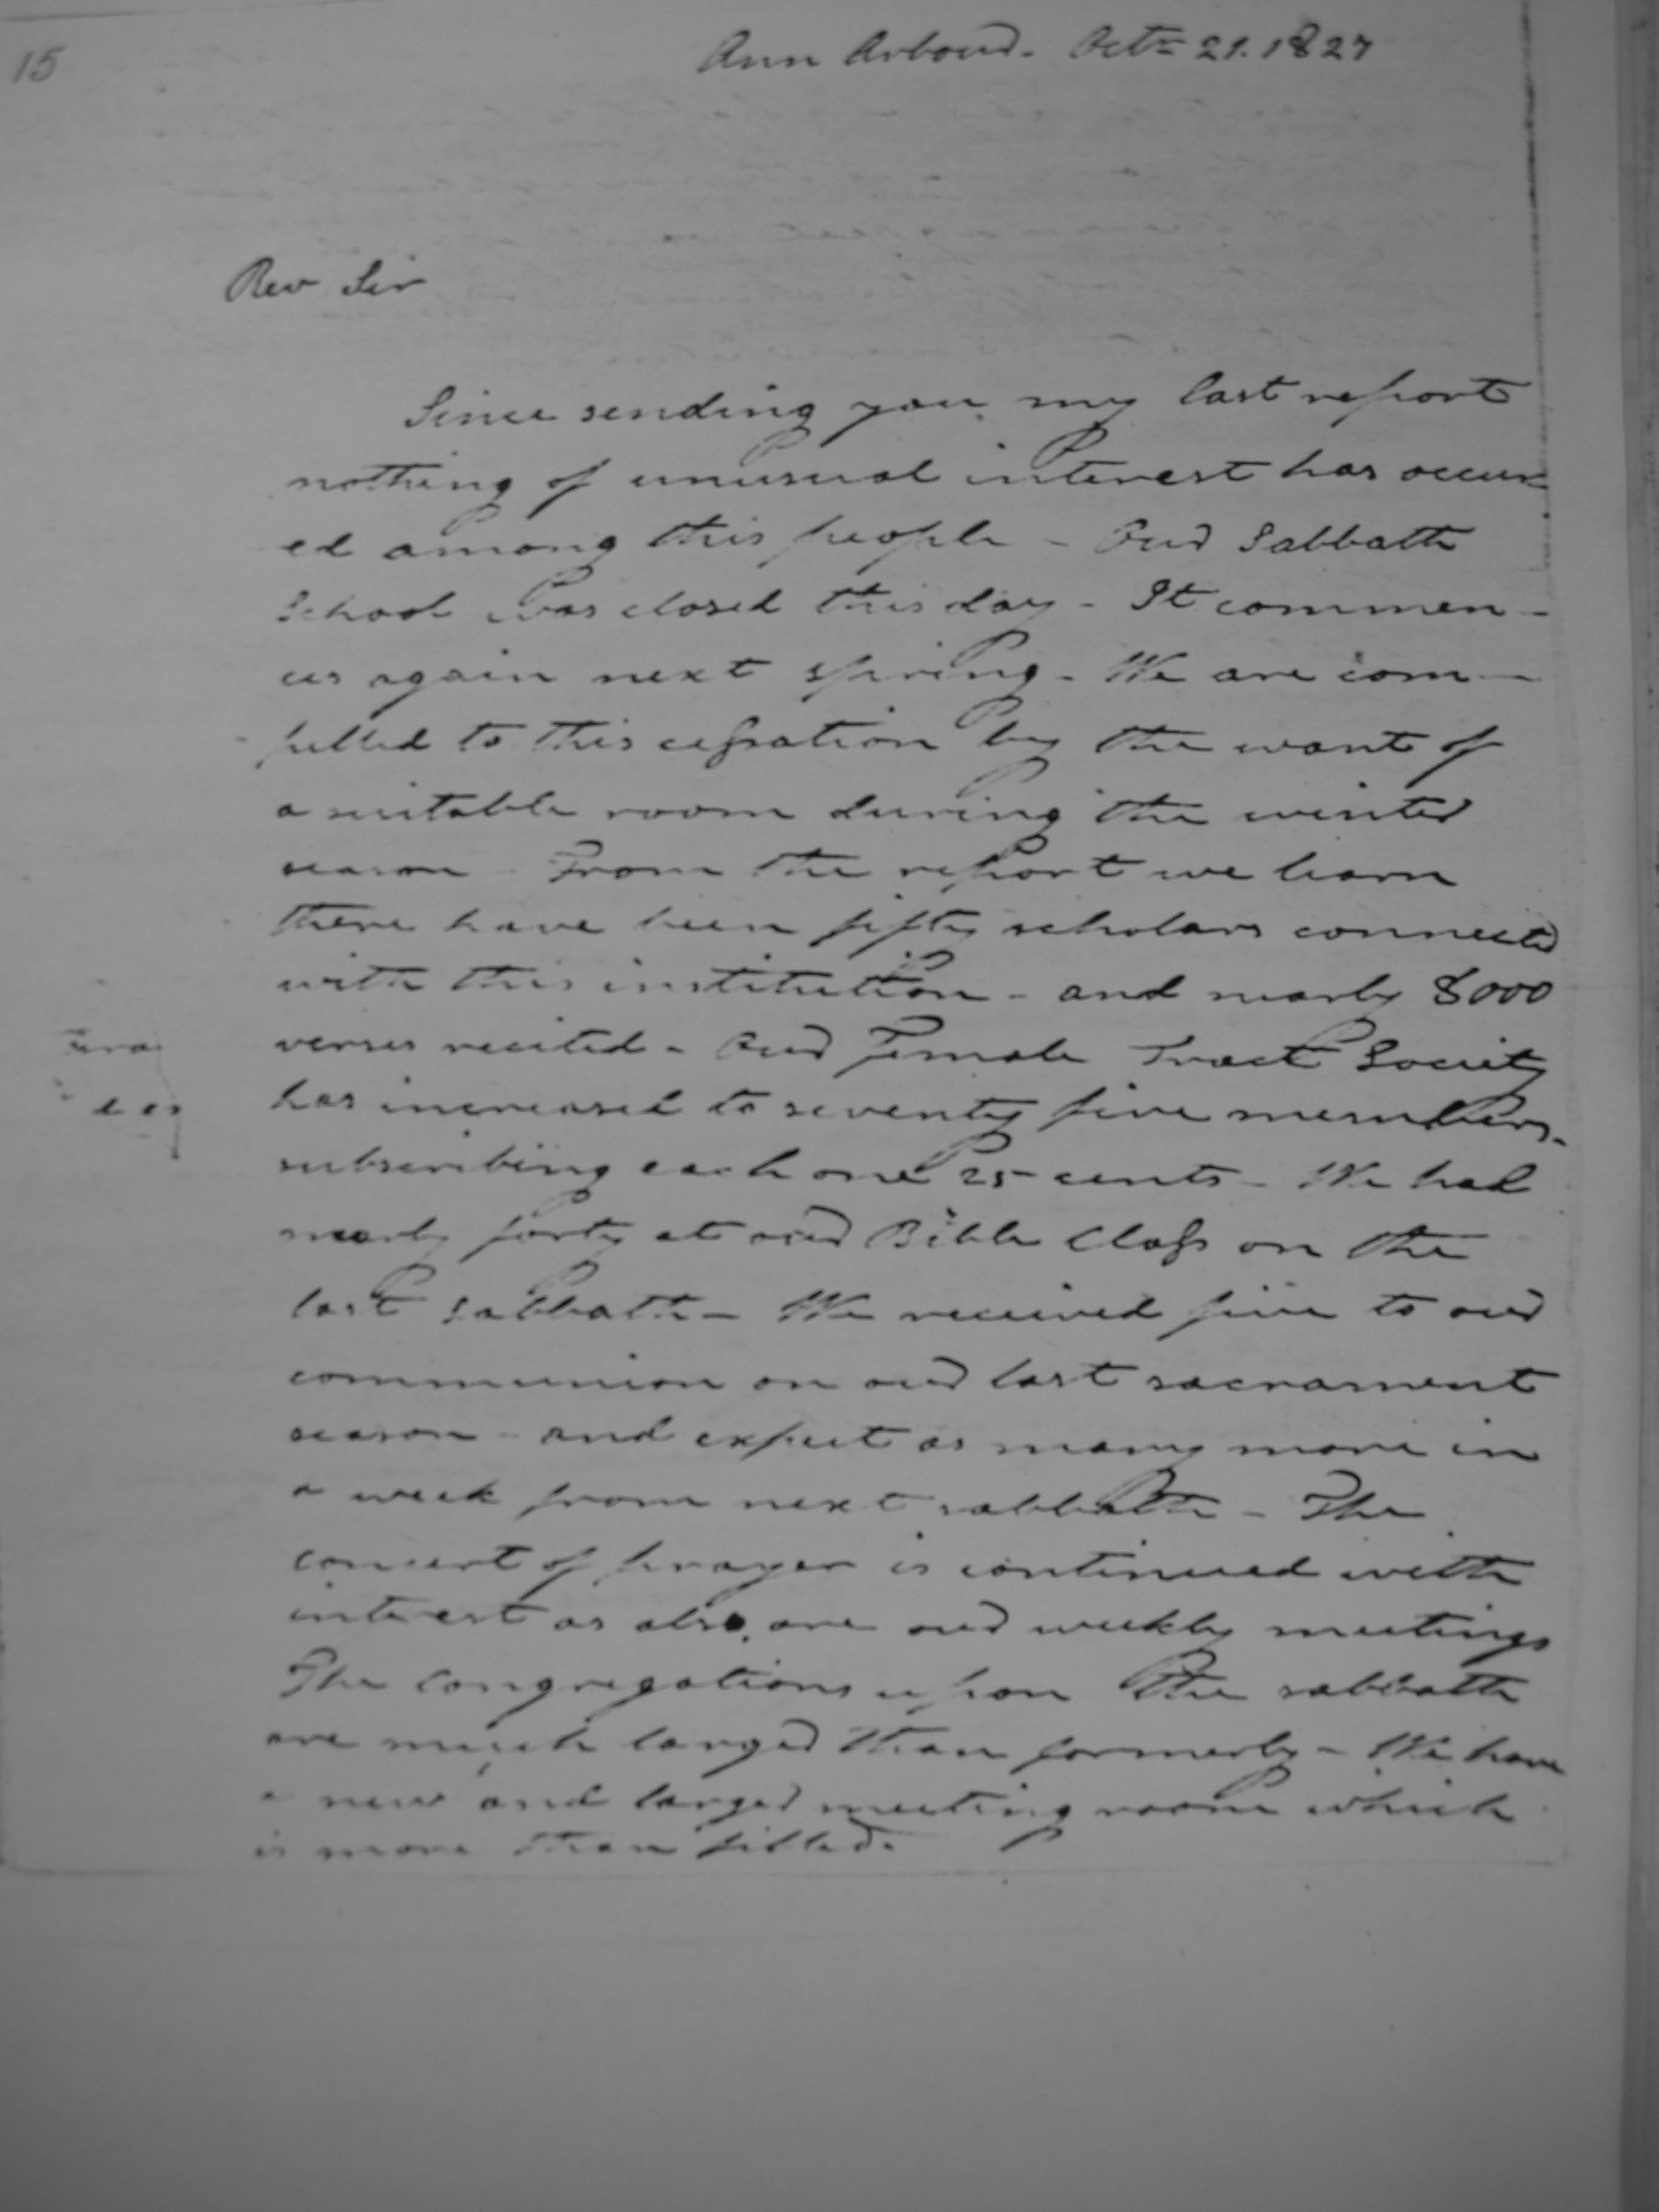 15
Ann Arbour. Octr 21. 1827
Rev Sir
Since sending you my last report
nothing of unusual interest has occur-
ed among this people - Our Sabbath
School was closed this day - It commen-
ces again next spring. We are com-
pelled to this cessation by the want of
a suitable room during the winter
season - From the report we learn
there have been fifty scholars connected
with this institution - and nearly 8000
verses recited - Our Female Tract Society
has increased to seventy five members.
subscribing each one 25 cents - We had
nearly forty at our Bible Class on the
last Sabbath - We received five to our
communion on our last sacrament
season - and expect as many more in
a week from next sabbath - The
concert of prayer is continued with
interest as also, are our weekly meetings
The congregations upon the sabbath
are much larger than formerly - We have
a new and larger meeting room which
is more than filled.